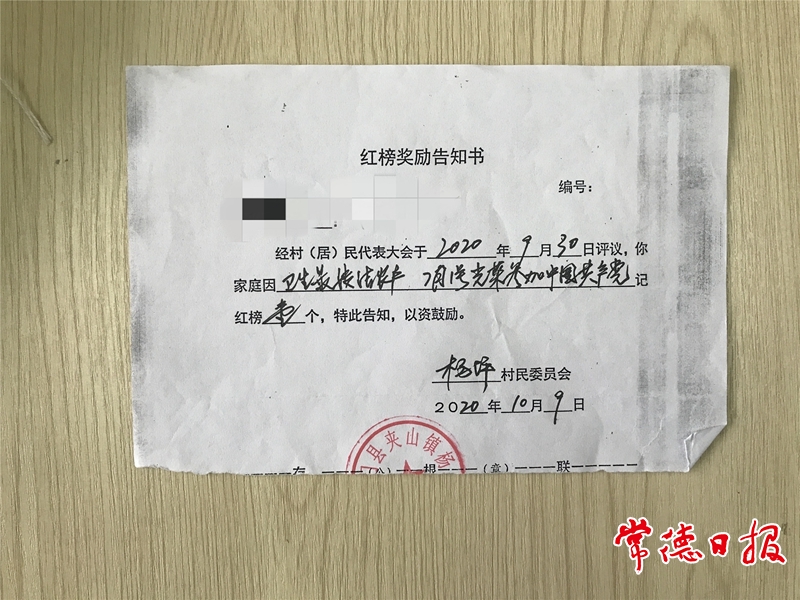 红榜奖励告知书
编号：
经村（居）民代表大会于 2020 年 9 月 30 日评议，你
家庭因 卫生最清洁 光荣参加中国共产党 记
红榜 个，特此告知，以资鼓励。
杨坪 村民委员会
2020 年 10 月 9 日
县夹山镇杨
———存———（公）—根———（章）———联—————
常德日报